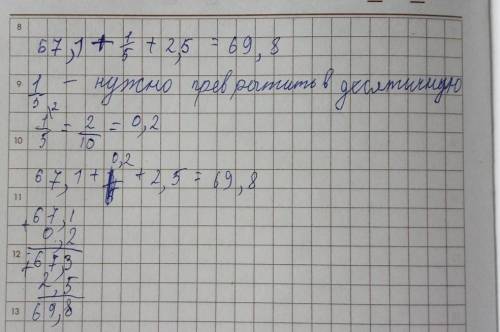 8
67,1 + 1/5 + 2,5 = 69,8
9
1/5 – нужно превратить в десятичную
1/5 \2 = 2/10 = 0,2
10
67,1 + 0,2 + 2,5 = 69,8
11
+ 67,1
0,2
12
+ 67,3
2,5
13
69,8